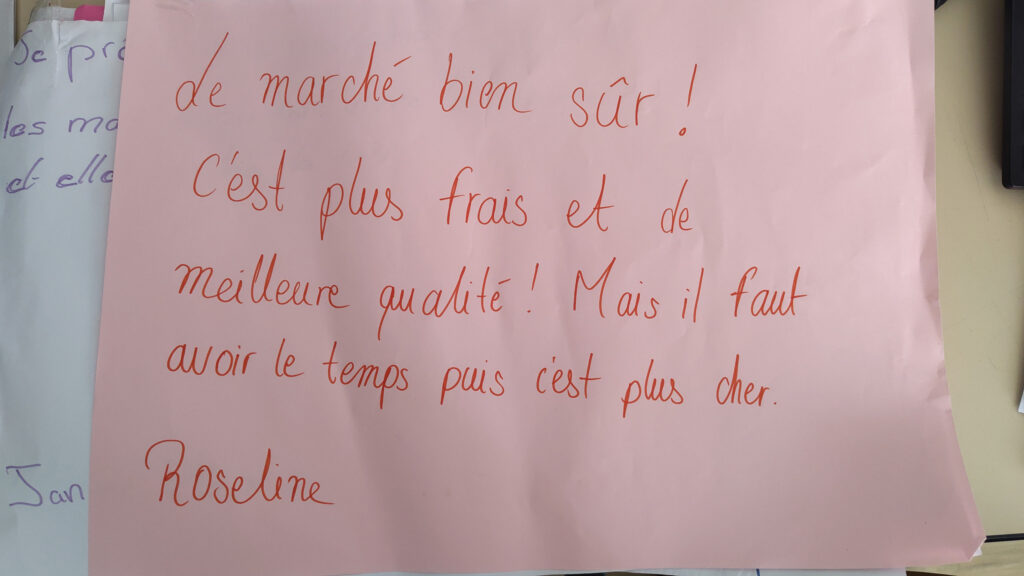 de marché bien sûr !
C'est plus frais et de
meilleure qualité ! Mais il faut
avoir le temps puis c'est plus cher.
Roseline
Je
les
et
Jan